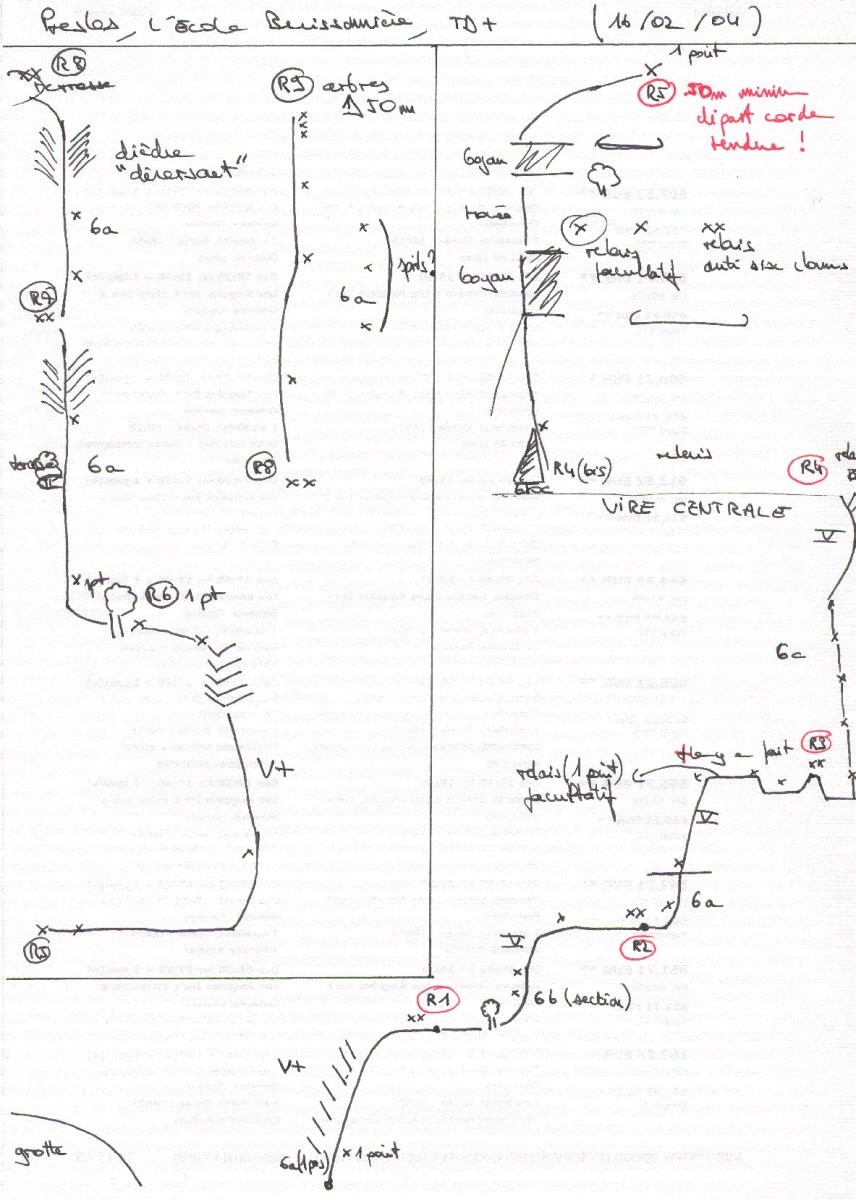 Presles, L'école Buissonnière, TD+ (16/02/04)
R8
xx terrasse
dièdre
"déversant"
6a
R7
xx
6a
1pt
R6 1 pt
V+
R5
R9 arbres
50m
spits?
6a
R8
xx
1 point
R5 50m minim
départ corde
tendue !
boyau
boyau
relais
facultatif
xx
relais
anti six clous
R4(bis)
relais
R4
VIRE CENTRALE
V
6c
R3
xx
relais (1 point)
facultatif
V
6a
xx
R2
V
6b (section)
R1
xx
V+
6a(1pas)
x 1 point
grotte